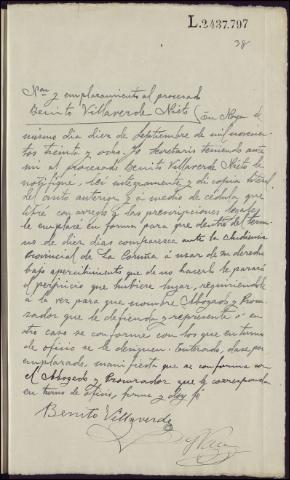 L.2437.797
38
Non y emplazamiento al procesado
Benito Villaverde Nieto (En Noya
mismo día diez de Septiembre de mil novecien-
tos treinta y ocho. Yo Secretario teniendo ante
mi al procesado Benito Villaverde Nieto le
notifiqué, leí integramente y di copia literal
del auto anterior y a medio de cédula que
libré con arreglo a las prescripciones legales
le emplacé en forma para que dentro del térmi-
no de diez días comparezca ante la Audiencia
Provincial de La Coruña a usar de su derecho
bajo apercibimiento que de no hacerlo le parará
el perjuicio que hubiere lugar, requiriéndole
a la vez para que nombre Abogado y Procu-
rador que le defienda y represente o en
otro caso se conforme con los que en turno
de oficio se le designen. Enterado, dase por
emplazado, manifiesta que se conforma con
el Abogado y Procurador que le corresponda
en turno de oficio, firma y doy fé
Benito Villaverde